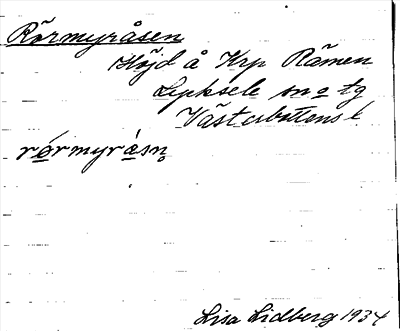 Rörmyråsen
Höjd å Krp Råmen
Lycksele sn o tg
Västerbottens l
rórmyråsn̥
Lisa Lidberg 1934